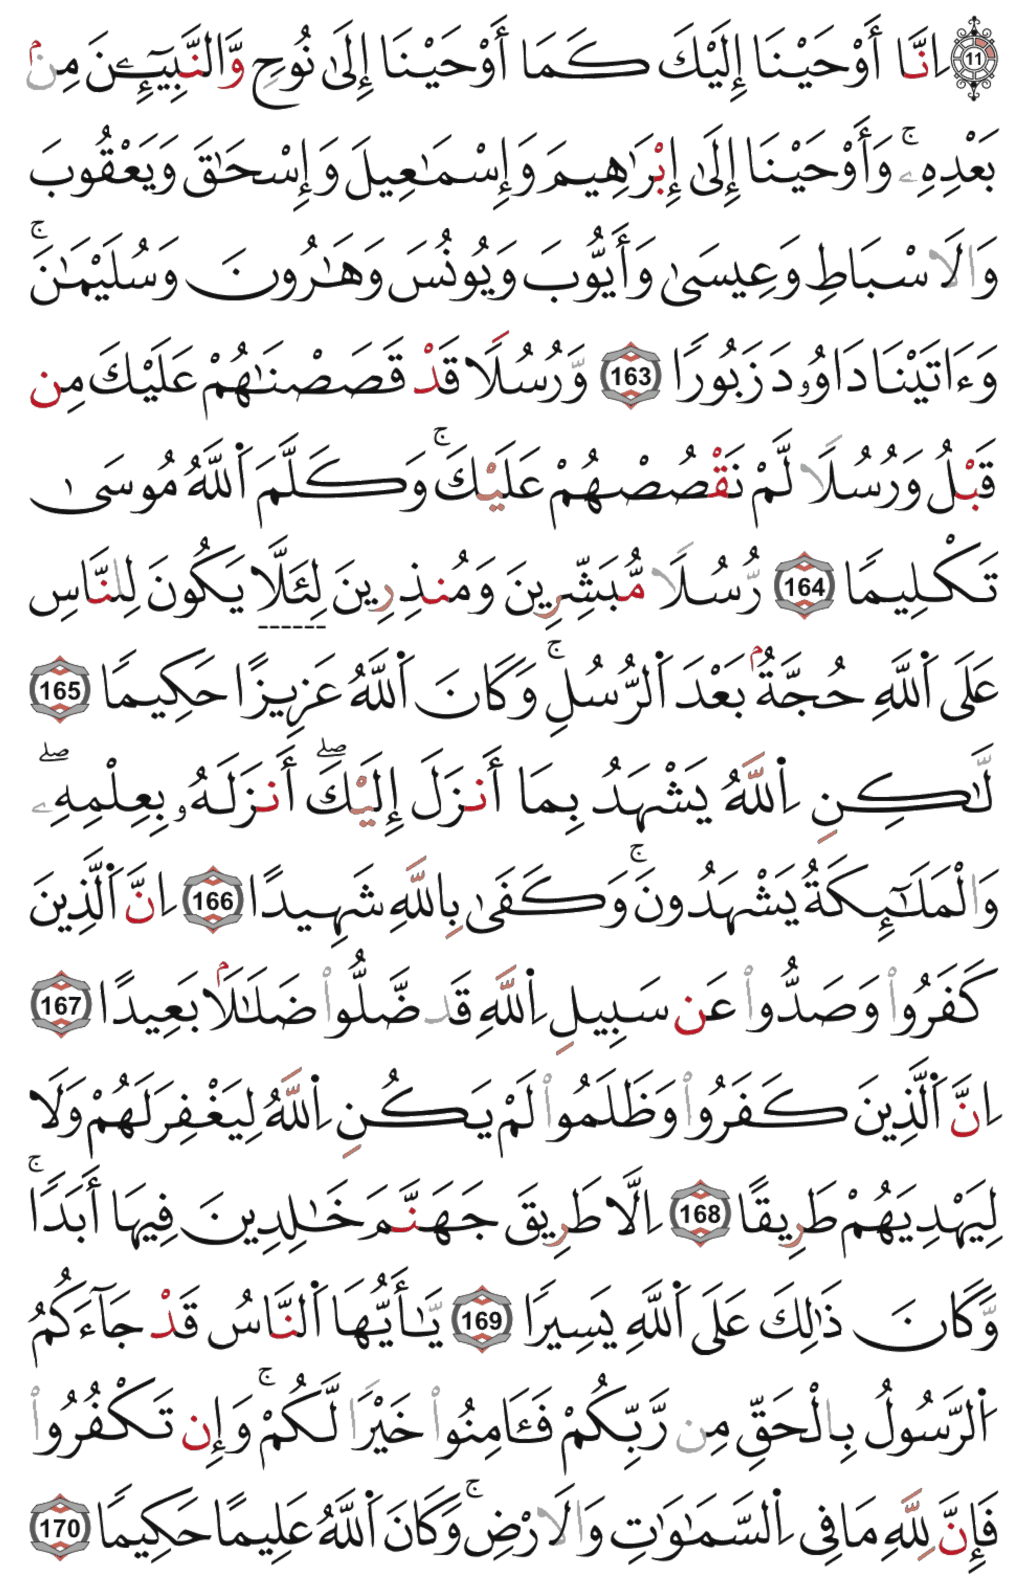 11 اِنَّا أَوْحَيْنَا إِلَيْكَ كَمَا أَوْحَيْنَا إِلَىٰ نُوحٍ وَّالنَّبِيِّـۧنَ مِنۢ
بَعْدِهِۦ ۚ وَأَوْحَيْنَا إِلَىٰ إِبْرَٰهِيمَ وَإِسْمَٰعِيلَ وَإِسْحَٰقَ وَيَعْقُوبَ
وَالَاسْبَاطِ وَعِيسَىٰ وَأَيُّوبَ وَيُونُسَ وَهَٰرُونَ وَسُلَيْمَٰنَ ۚ
وَءَاتَيْنَا دَاوُۥدَ زَبُورًا 163 وَّرُسُلًا قَدْ قَصَصْنَٰهُمْ عَلَيْكَ مِن
قَبْلُ وَرُسُلًا لَّمْ نَقْصُصْهُمْ عَلَيْكَ ۚ وَكَلَّمَ ٱللَّهُ مُوسَىٰ
تَكْلِيمًا 164 رُّسُلًا مُّبَشِّرِينَ وَمُنذِرِينَ لِئَلَّا يَكُونَ لِلنَّاسِ
عَلَى ٱللَّهِ حُجَّةُۢ بَعْدَ ٱلرُّسُلِ ۚ وَكَانَ ٱللَّهُ عَزِيزًا حَكِيمًا 165
لَّٰكِنِ اِ۬للَّهُ يَشْهَدُ بِمَا أَنزَلَ إِلَيْكَ ۖ أَنزَلَهُۥ بِعِلْمِهِۦ ۖ
وَالْمَلَٰٓئِكَةُ يَشْهَدُونَ ۚ وَكَفَىٰ بِاللَّهِ شَهِيدًا 166 اِنَّ ٱلَّذِينَ
كَفَرُوا۟ وَصَدُّوا۟ عَن سَبِيلِ اِ۬للَّهِ قَد ضَّلُّوا۟ ضَلَٰلَاۢ بَعِيدًا 167
اِنَّ ٱلَّذِينَ كَفَرُوا۟ وَظَلَمُوا۟ لَمْ يَكُنِ اِ۬للَّهُ لِيَغْفِرَ لَهُمْ وَلَا
لِيَهْدِيَهُمْ طَرِيقًا 168 اِلَّا طَرِيقَ جَهَنَّمَ خَٰلِدِينَ فِيهَا أَبَدًا ۚ
وَّكَانَ ذَٰلِكَ عَلَى ٱللَّهِ يَسِيرًا 169 يَّٰأَيُّهَا ٱلنَّاسُ قَدْ جَآءَكُمُ
ٱلرَّسُولُ بِالْحَقِّ مِن رَّبِّكُمْ فَـَٔامِنُوا۟ خَيْرًا لَّكُمْ ۚ وَإِن تَكْفُرُوا۟
فَإِنَّ لِلَّهِ مَا فِى اِ۬لسَّمَٰوَٰتِ وَالَارْضِ ۚ وَكَانَ ٱللَّهُ عَلِيمًا حَكِيمًا 170